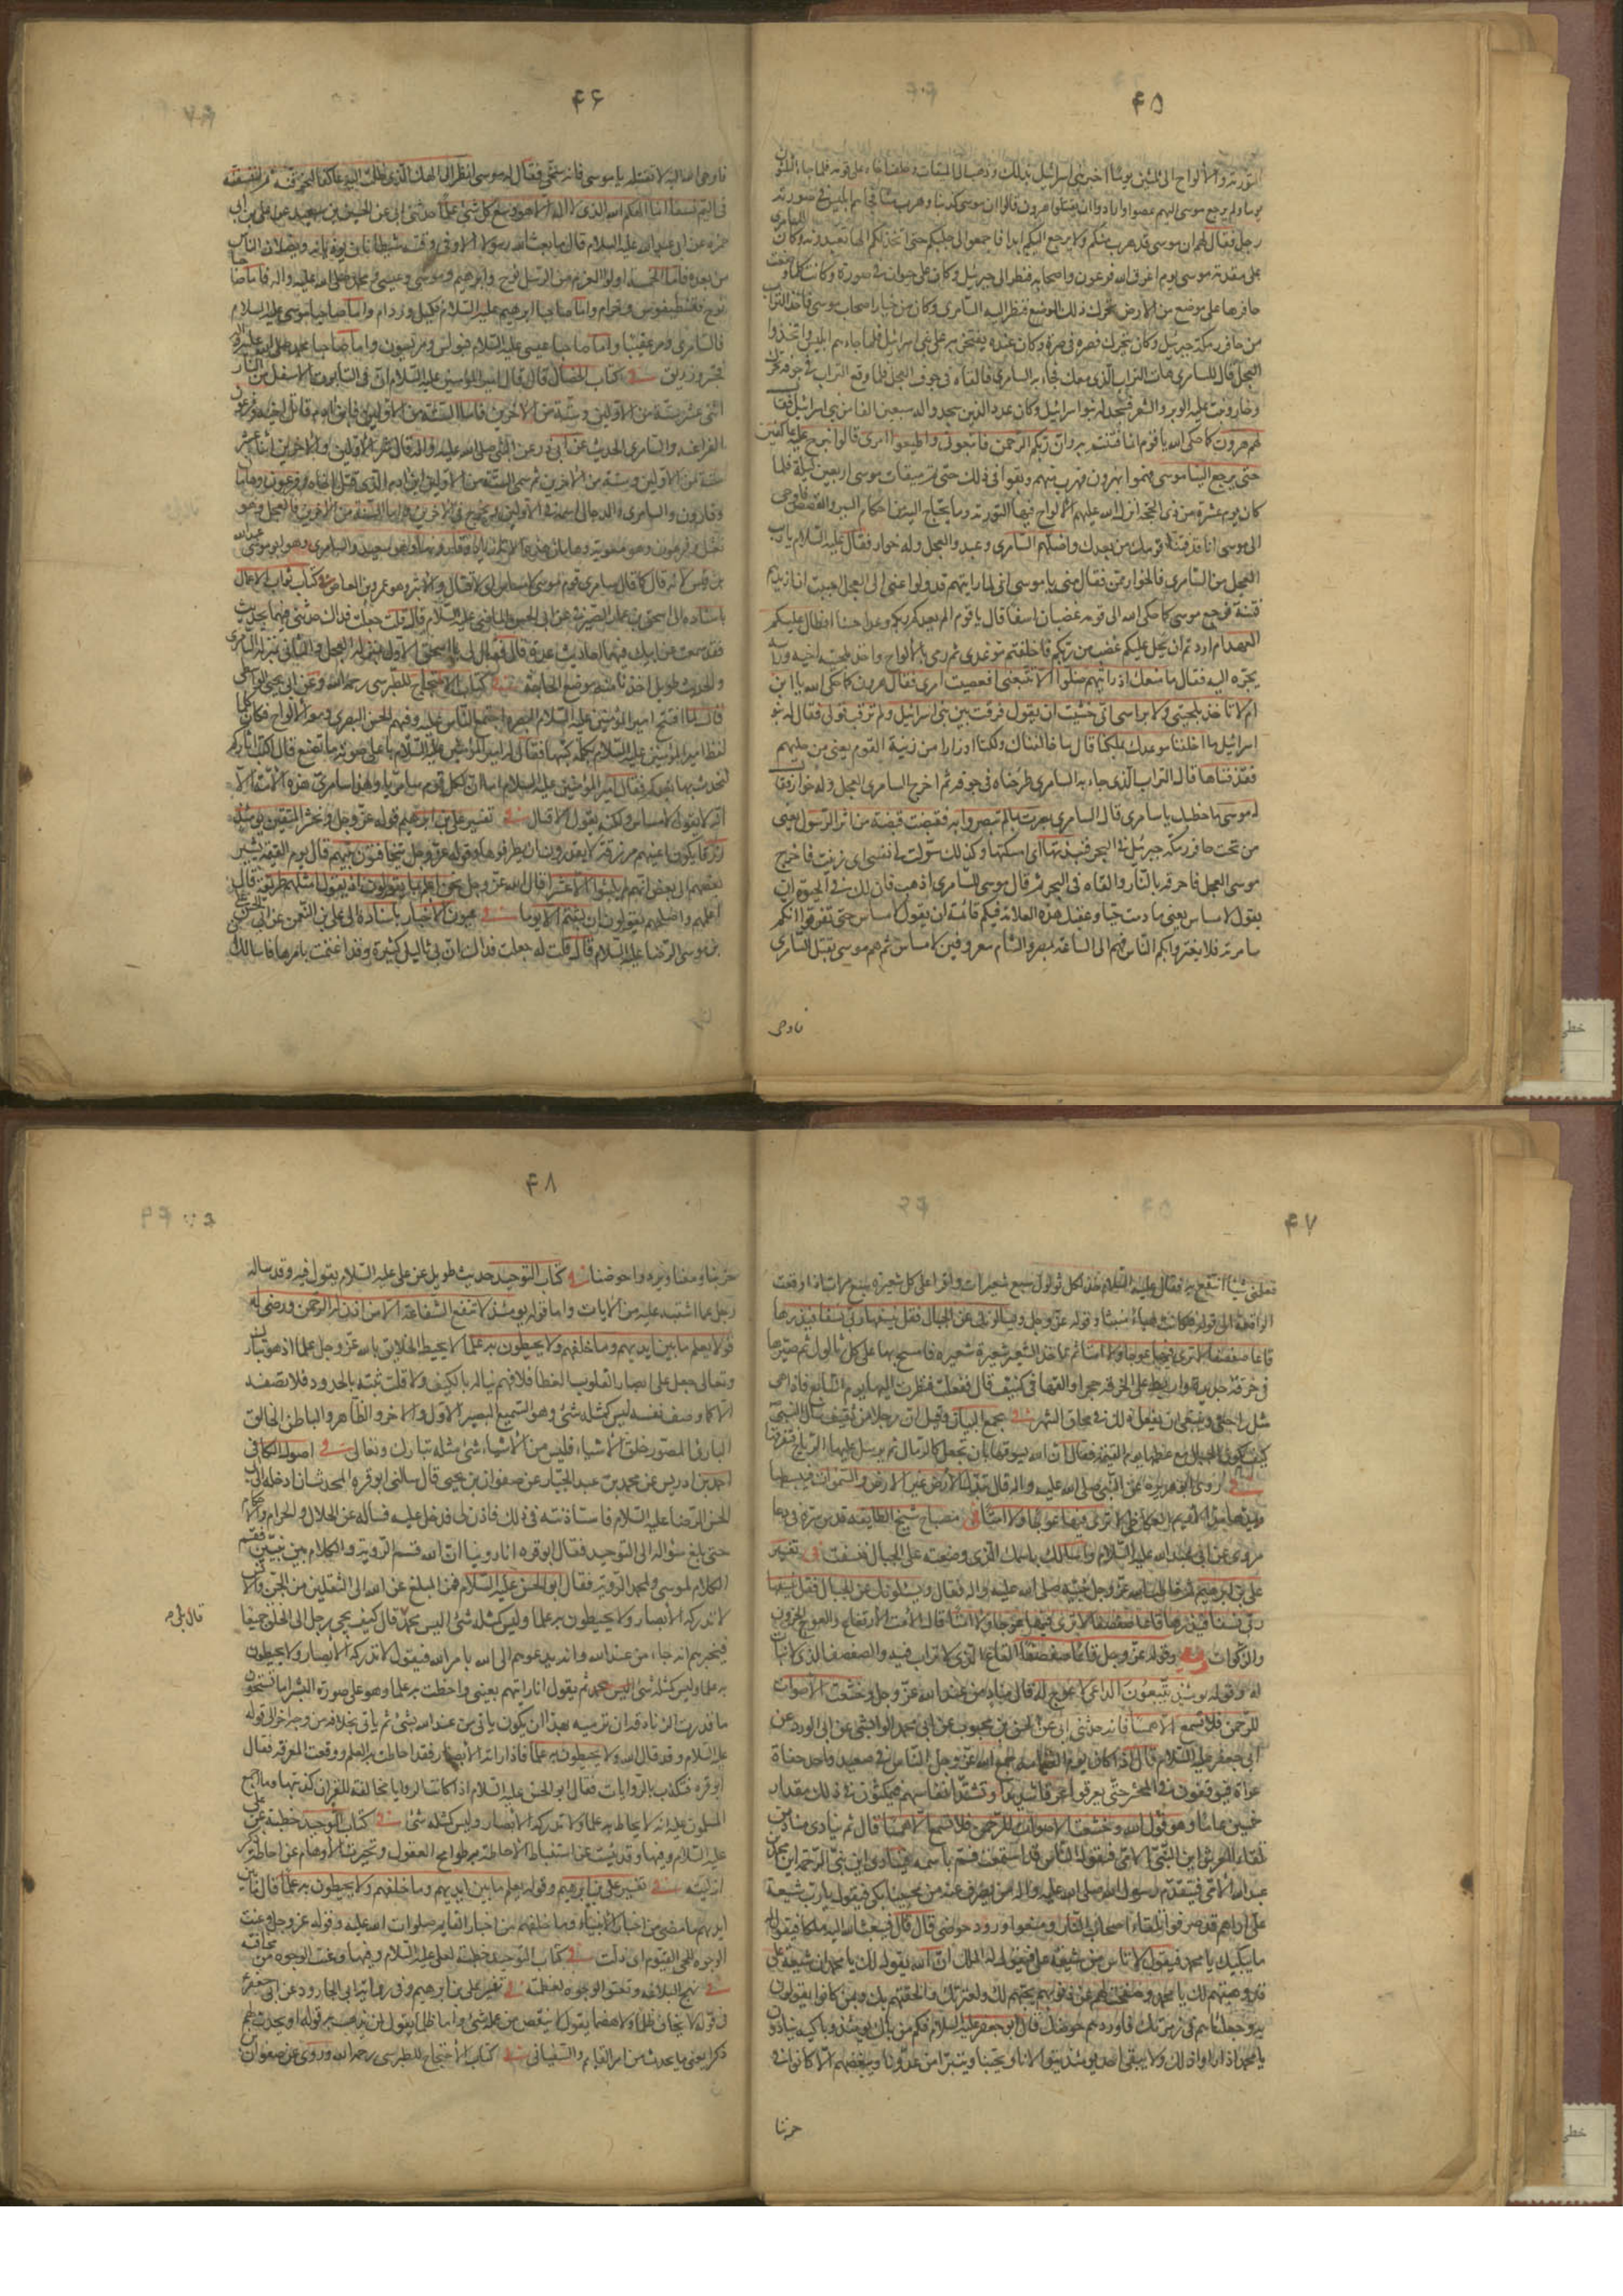 ۴۵
التوریة والألواح الى ثلثین یوما اخبر بنی اسرائیل بذلک وذهب الى المیقات وخلف اخاه على قومه فلما جاء الثلثون
یوما ولم یرجع موسى الیهم عصوا وارادوا ان یقتلوا هرون قالوا ان موسى کذبنا وهرب منا فجاءهم ابلیس فی صورة
رجل فقال لهم ان موسى قد هرب منکم ولا یرجع الیکم ابدا فاجمعوا لی حلیکم حتى اتخذ لکم الها تعبدونه وکان السامری
على مقدمة موسى یوم اغرق الله فرعون واصحابه فنظر الى جبرئیل وکان على حیوان فی صورة وکانت کلما وضعت
حافرها على موضع من الارض تحرک ذلک الموضع فنظر الیه السامری وکان من خیار اصحاب موسى فاخذ التراب
من حافر رمکة جبرئیل وکان یتحرک فصره فی صرة وکان عنده یفتخر به على بنی اسرائیل فلما جاءهم ابلیس واتخذوا
العجل قال للسامری هات التراب الذی معک فجاء به السامری فالقاه فی جوف العجل فلما وقع التراب فی جوفه تحرک
وخار ونبت علیه الوبر والشعر فسجد له بنو اسرائیل وکان عدد الذین سجدوا له سبعین الفا من بنی اسرائیل فقال
لهم هرون کما حکى الله یا قوم انما فتنتم به وان ربکم الرحمن فاتبعونی واطیعوا امری قالوا لن نبرح علیه عاکفین
حتى یرجع الینا موسى فهموا بهرون فهرب منهم وبقوا فی ذلک حتى تم میقات موسى اربعین لیلة فلما
کان یوم عشرة من ذی الحجة انزل الله علیهم الالواح فیها التوریة وما یحتاج الیه من احکام السیر والقصص فاوحى
الى موسى انا قد فتنا قومک من بعدک واضلهم السامری وعبدوا العجل وله خوار فقال علیه السلام یا رب
العجل من السامری فالخوار ممن فقال منی یا موسى انی لما رایتهم قد ولوا عنی الى العجل احببت ان ازیدهم
فتنة فرجع موسى کما حکى الله الى قومه غضبان اسفا قال یا قوم الم یعدکم ربکم وعدا حسنا افطال علیکم
العهد ام اردتم ان یحل علیکم غضب من ربکم فاخلفتم موعدی ثم رمى بالالواح واخذ بلحیة اخیه وراسه
یجره الیه فقال ما منعک اذ رایتهم ضلوا الا تتبعنی افعصیت امری فقال هرون کما حکى الله یا ابن
ام لا تاخذ بلحیتی ولا براسی انی خشیت ان یقول فرقت بین بنی اسرائیل ولم ترقب قولی فقال له بنو
اسرائیل ما اخلفنا موعدک بملکنا قال ما خالفناک ولکنا اوزارا من زینة القوم یعنی من حلیهم
فقذفناها قال التراب الذی جاء به السامری طرحناه فی جوفه ثم اخرج السامری العجل وله خوار فقال
له موسى ما خطبک یا سامری قال السامری بصرت بما لم تبصروا به فقبضت قبضة من اثر الرسول یعنی
من تحت حافر رمکة جبرئیل فی البحر فنبذتها ای امسکتها وکذلک سولت لی نفسی ای زینت فاخرج
موسى العجل فاحرقه بالنار والقاه فی البحر ثم قال موسى للسامری اذهب فان لک فی الحیوة ان
یقول لا مساس یعنی ما دمت حیا وعقبک هذه العلامة فیکم قائمة ان یقول لا مساس حتى تعرفوا انکم
سامریة فلا یغتر بکم الناس فهم الى الساعة بمصر والشام معروفین لا مساس ثم هم موسى بقتل السامری
فاوحى
۴۶
فاوحى الله الیه لا تقتله یا موسى فانه سخی فقال له موسى انظر الى الهک الذی ظلت علیه عاکفا لنحرقنه ثم لننسفنه
فی الیم نسفا انما الهکم الله الذی لا اله الا هو وسع کل شئ علما حدثنی ابی عن الحسین بن سعید عن علی بن ابی
حمزة عن ابی عبدالله علیه السلام قال ما بعث الله رسولا الا وفی وقته شیطانان یؤذیانه ویضلان الناس
من بعده فاما الخمسة اولوا العزم من الرسل نوح وابرهیم وموسى وعیسى ومحمد صلى الله علیه واله فاما صاحبا
نوح فغنطیفوس وخرام واما صاحبا ابرهیم علیه السلام فمکیل وزدام واما صاحبا موسى علیه السلام
فالسامری ومرعقیبا واما صاحبا عیسى علیه السلام فبولس ومریسون واما صاحبا محمد صلى الله علیه واله
فحبتر وزریق فی کتاب الخصال قال قال امیر المؤمنین علیه السلام ان فی التابوت الاسفل من النار
اثنى عشر ستة من الاولین وستة من الاخرین فاما الستة من الاولین فابن ادم قاتل اخیه وفرعون
الفراعنة والسامری الحدیث عن ابی ذر عن النبی صلى الله علیه واله قال شر الاولین والاخرین اثنا عشر
ستة من الاولین وستة من الاخرین ثم سمى الستة من الاولین ابن ادم الذی قتل اخاه وفرعون وهامان
وقارون والسامری والدجال اسمه فی الاولین ویخرج فی الاخرین واما الستة من الاخرین فالعجل وهو
نعثل وفرعون وهو معویة وهامان هذه الامة زیاد وقارونها وهو سعید والسامری وهو ابو موسى عبدالله
بن قیس لانه قال کما قال سامری قوم موسى لا مساس ای لا قتال والابتر وهو عمرو بن العاص فی کتاب ثواب الاعمال
باسناده الى اسحق بن عمار الصیرفی عن ابی الحسن الماضی علیه السلام قال قلت جعلت فداک حدثنی فیهما بحدیث
فقد سمعت من ابیک فیهما احادیث عدة قال فقال لی یا اسحق الاول بمنزلة العجل والثانی بمنزلة السامری
والحدیث طویل اخذنا منه موضع الحاجة فی کتاب الاحتجاج للطبرسی رحمه الله وعن ابی یحیى الواسطی
قال لما افتتح امیر المؤمنین علیه السلام البصرة اجتمع الناس علیه وفیهم الحسن البصری ومعه الالواح فکان کلما
لفظ امیر المؤمنین علیه السلام بکلمة کتبها فقال له امیر المؤمنین علیه السلام باعلى صوته ما تصنع قال اکتب اثارکم
لنحدث بها بعدکم فقال امیر المؤمنین علیه السلام اما ان لکل قوم سامریا وهذا سامری هذه الامة الا
انه لا یقول لا مساس ولکنه یقول لا قتال فی تفسیر علی بن ابرهیم قوله عز وجل ونحشر المجرمین یومئذ
زرقا یکون اعینهم مزرقة لا یقدرون ان یطرفوها وقوله عز وجل یتخافتون بینهم قال یوم القیمة یشیر
بعضهم الى بعض انهم لم یلبثوا الا عشرا قال الله عز وجل نحن اعلم بما یقولون اذ یقول امثلهم طریقة قال
اعلمهم واصلحهم یقولون ان لبثتم الا یوما فی عیون الاخبار باسناده الى علی بن النعمن عن ابی الحسن علی
بن موسى الرضا علیه السلام قال قلت له جعلت فداک ان بی ثالیل کثیرة وقد اغتممت بامرها فاسالک
۴۷
فعلمنی شیئا انتفع به فقال علیه السلام خذ لکل ثؤلول سبع شعیرات واقرا على کل شعیرة سبع مرات اذا وقعت
الواقعة الى قوله فکانت هباء منبثا وقوله عز وجل ویسالونک عن الجبال فقل ینسفها ربی نسفا فیذرها
قاعا صفصفا لا ترى فیها عوجا ولا امتا ثم تاخذ الشعیر شعیرة شعیرة فامسح بها على کل ثالول ثم صیرها
فی خرقة جدیدة واربط على الخرقة حجرا والقها فی کنیف قال ففعلت فنظرت الیها یوم السابع فاذا هی
مثل راحتی وینبغی ان یفعل ذلک فی محاق الشهر فی مجمع البیان وقیل ان رجلا من ثقیف سال النبی
کیف تکون الجبال مع عظمها یوم القیمة فقال ان الله یسوقها بان یجعلها کالرمال ثم یرسل علیها الریاح فتفرقها
فی روى ابو هریرة عن النبی صلى الله علیه واله قال تبدل الارض غیر الارض والسموات فیبسطها
ویمدها مد الادیم العکاظی لا ترى فیها عوجا ولا امتا فی مصباح شیخ الطایفة قدس سره فی دعا
مروی عن ابی عبدالله علیه السلام واسالک باسمک الذی وضعته على الجبال فنسفت فی تفسیر
علی بن ابرهیم ثم خاطب الله عز وجل نبیه صلى الله علیه واله فقال ویسئلونک عن الجبال فقل ینسفها
ربی نسفا فیذرها قاعا صفصفا لا ترى فیها عوجا ولا امتا قال الامت الارتفاع والعوج الحزون
والذکوات وفیه وقوله عز وجل قاعا صفصفا القاع الذی لا تراب فیه والصفصف الذی لا نبات
له وقوله یومئذ یتبعون الداعی لا عوج له قال مناد من عند الله عز وجل وخشعت الاصوات
للرحمن فلا تسمع الا همسا فانه حدثنی ابی عن الحسن بن محبوب عن ابی محمد الوابشی عن ابی الورد عن
ابی جعفر علیه السلام قال اذا کان یوم القیامة جمع الله عز وجل الناس فی صعید واحد حفاة
عراة فیوقفون فی المحشر حتى یعرقوا عرقا شدیدا وتشتد انفاسهم فیمکثون فی ذلک مقدار
خمسین عاما وهو قول الله وخشعت الاصوات للرحمن فلا تسمع الا همسا قال ثم ینادی مناد من
تلقاء العرش این النبی الامی فیقول الناس قد اسمعت فسم باسمه فینادی این نبی الرحمة این محمد بن
عبدالله الامی فیتقدم رسول الله صلى الله علیه واله من یصرف عنه من محبینا بکى فیقول یا رب شیعة
علی اراهم قد صرفوا تلقاء اصحاب النار ومنعوا ورود حوضی قال قال فیبعث الله الیه ملکا فیقول له
ما یبکیک یا محمد فیقول لاناس من شیعة علی فیقول له الملک ان الله یقول لک یا محمد ان شیعة علی
قد وهبتهم لک یا محمد وصفحت لهم عن ذنوبهم بحبهم لک ولعترتک والحقتهم بک وبمن کانوا یقولون
به وجعلناهم فی زمرتک فاوردهم حوضک قال ابو جعفر علیه السلام فکم من باک یومئذ وباکیة ینادون
یا محمداه اذا راوا ذلک ولا یبقى احد یومئذ یتولانا ویحبنا ویتبرا من عدونا ویبغضهم الا کانوا فی
حزبنا
۴۸
حزبنا ومعنا ویرد حوضنا فی کتاب التوحید حدیث طویل عن علی علیه السلام یقول فیه وقد ساله
رجل عما اشتبه علیه من الایات واما قوله یومئذ لا تنفع الشفاعة الا من اذن له الرحمن ورضی له
قولا یعلم ما بین ایدیهم وما خلفهم ولا یحیطون به علما لا یحیط الخلایق بالله عز وجل علما اذ هو تبارک
وتعالى جعل على ابصار القلوب الغطا فلا فهم یناله بالکیف ولا قلب یثبته بالحدود فلا تصفه
الا کما وصف نفسه لیس کمثله شئ وهو السمیع البصیر الاول والاخر والظاهر والباطن الخالق
البارئ المصور خلق الاشیاء فلیس من الاشیاء شئ مثله تبارک وتعالى فی اصول الکافی
احمد بن ادریس عن محمد بن عبد الجبار عن صفوان بن یحیى قال سالنی ابو قرة المحدث ان ادخله الى ابی
الحسن الرضا علیه السلام فاستاذنته فی ذلک فاذن لی فدخل علیه فساله عن الحلال والحرام والاحکام
حتى بلغ سؤاله الى التوحید فقال ابو قرة انا روینا ان الله قسم الرویة والکلام بین نبیین فقسم
الکلام لموسى ولمحمد الرویة فقال ابو الحسن علیه السلام فمن المبلغ عن الله الى الثقلین من الجن والانس
لا تدرکه الابصار ولا یحیطون به علما ولیس کمثله شئ الیس محمد قال کیف یجئ رجل الى الخلق جمیعا
قال بلى
فیخبرهم انه جاء من عند الله وانه یدعوهم الى الله بامر الله فیقول لا تدرکه الابصار ولا یحیطون
به علما ولیس کمثله شئ الیس محمد ثم یقول انا رایته بعینی واحطت به علما وهو على صورة البشر اما تستحون
ما قدرت الزنادقة ان ترمیه بهذا ان یکون یاتی من عند الله بشئ ثم یاتی بخلافه من وجه اخر الى قوله
علیه السلام وقد قال الله ولا یحیطون به علما فاذا راته الابصار فقد احاطت به العلم ووقعت المعرفة فقال
ابو قرة فتکذب بالروایات فقال ابو الحسن علیه السلام اذا کانت الروایات مخالفة للقران کذبتها وما اجمع
المسلمون علیه انه لا یحاط به علما ولا تدرکه الابصار ولیس کمثله شئ فی کتاب التوحید خطبة عن علی
علیه السلام وفیها وقد یئست عن استنباط الاحاطة به طوامح العقول وتحیرت الاوهام عن احاطة ذکر
ازلیته فی تفسیر علی بن ابرهیم وقوله یعلم ما بین ایدیهم وما خلفهم ولا یحیطون به علما قال ما بین
ایدیهم ما مضى من اخبار الانبیاء وما خلفهم من اخبار القایم صلوات الله علیه وقوله عز وجل وعنت
الوجوه للحی القیوم ای ذلت فی کتاب التوحید خطبة لعلی علیه السلام وفیها وعنت الوجوه من مخافته
فی نهج البلاغة وتعنو الوجوه لعظمته فی تفسیر علی بن ابرهیم وفی روایة ابی الجارود عن ابی جعفر
فی قوله لا یخاف ظلما ولا هضما یقول لا ینقص من عمله شئ واما ظلما یقول لن یذهب به قوله او یحدث لهم
ذکرا یعنی ما یحدث من امر القایم والسفیانی فی کتاب الاحتجاج للطبرسی رحمه الله وروى عن صفوان